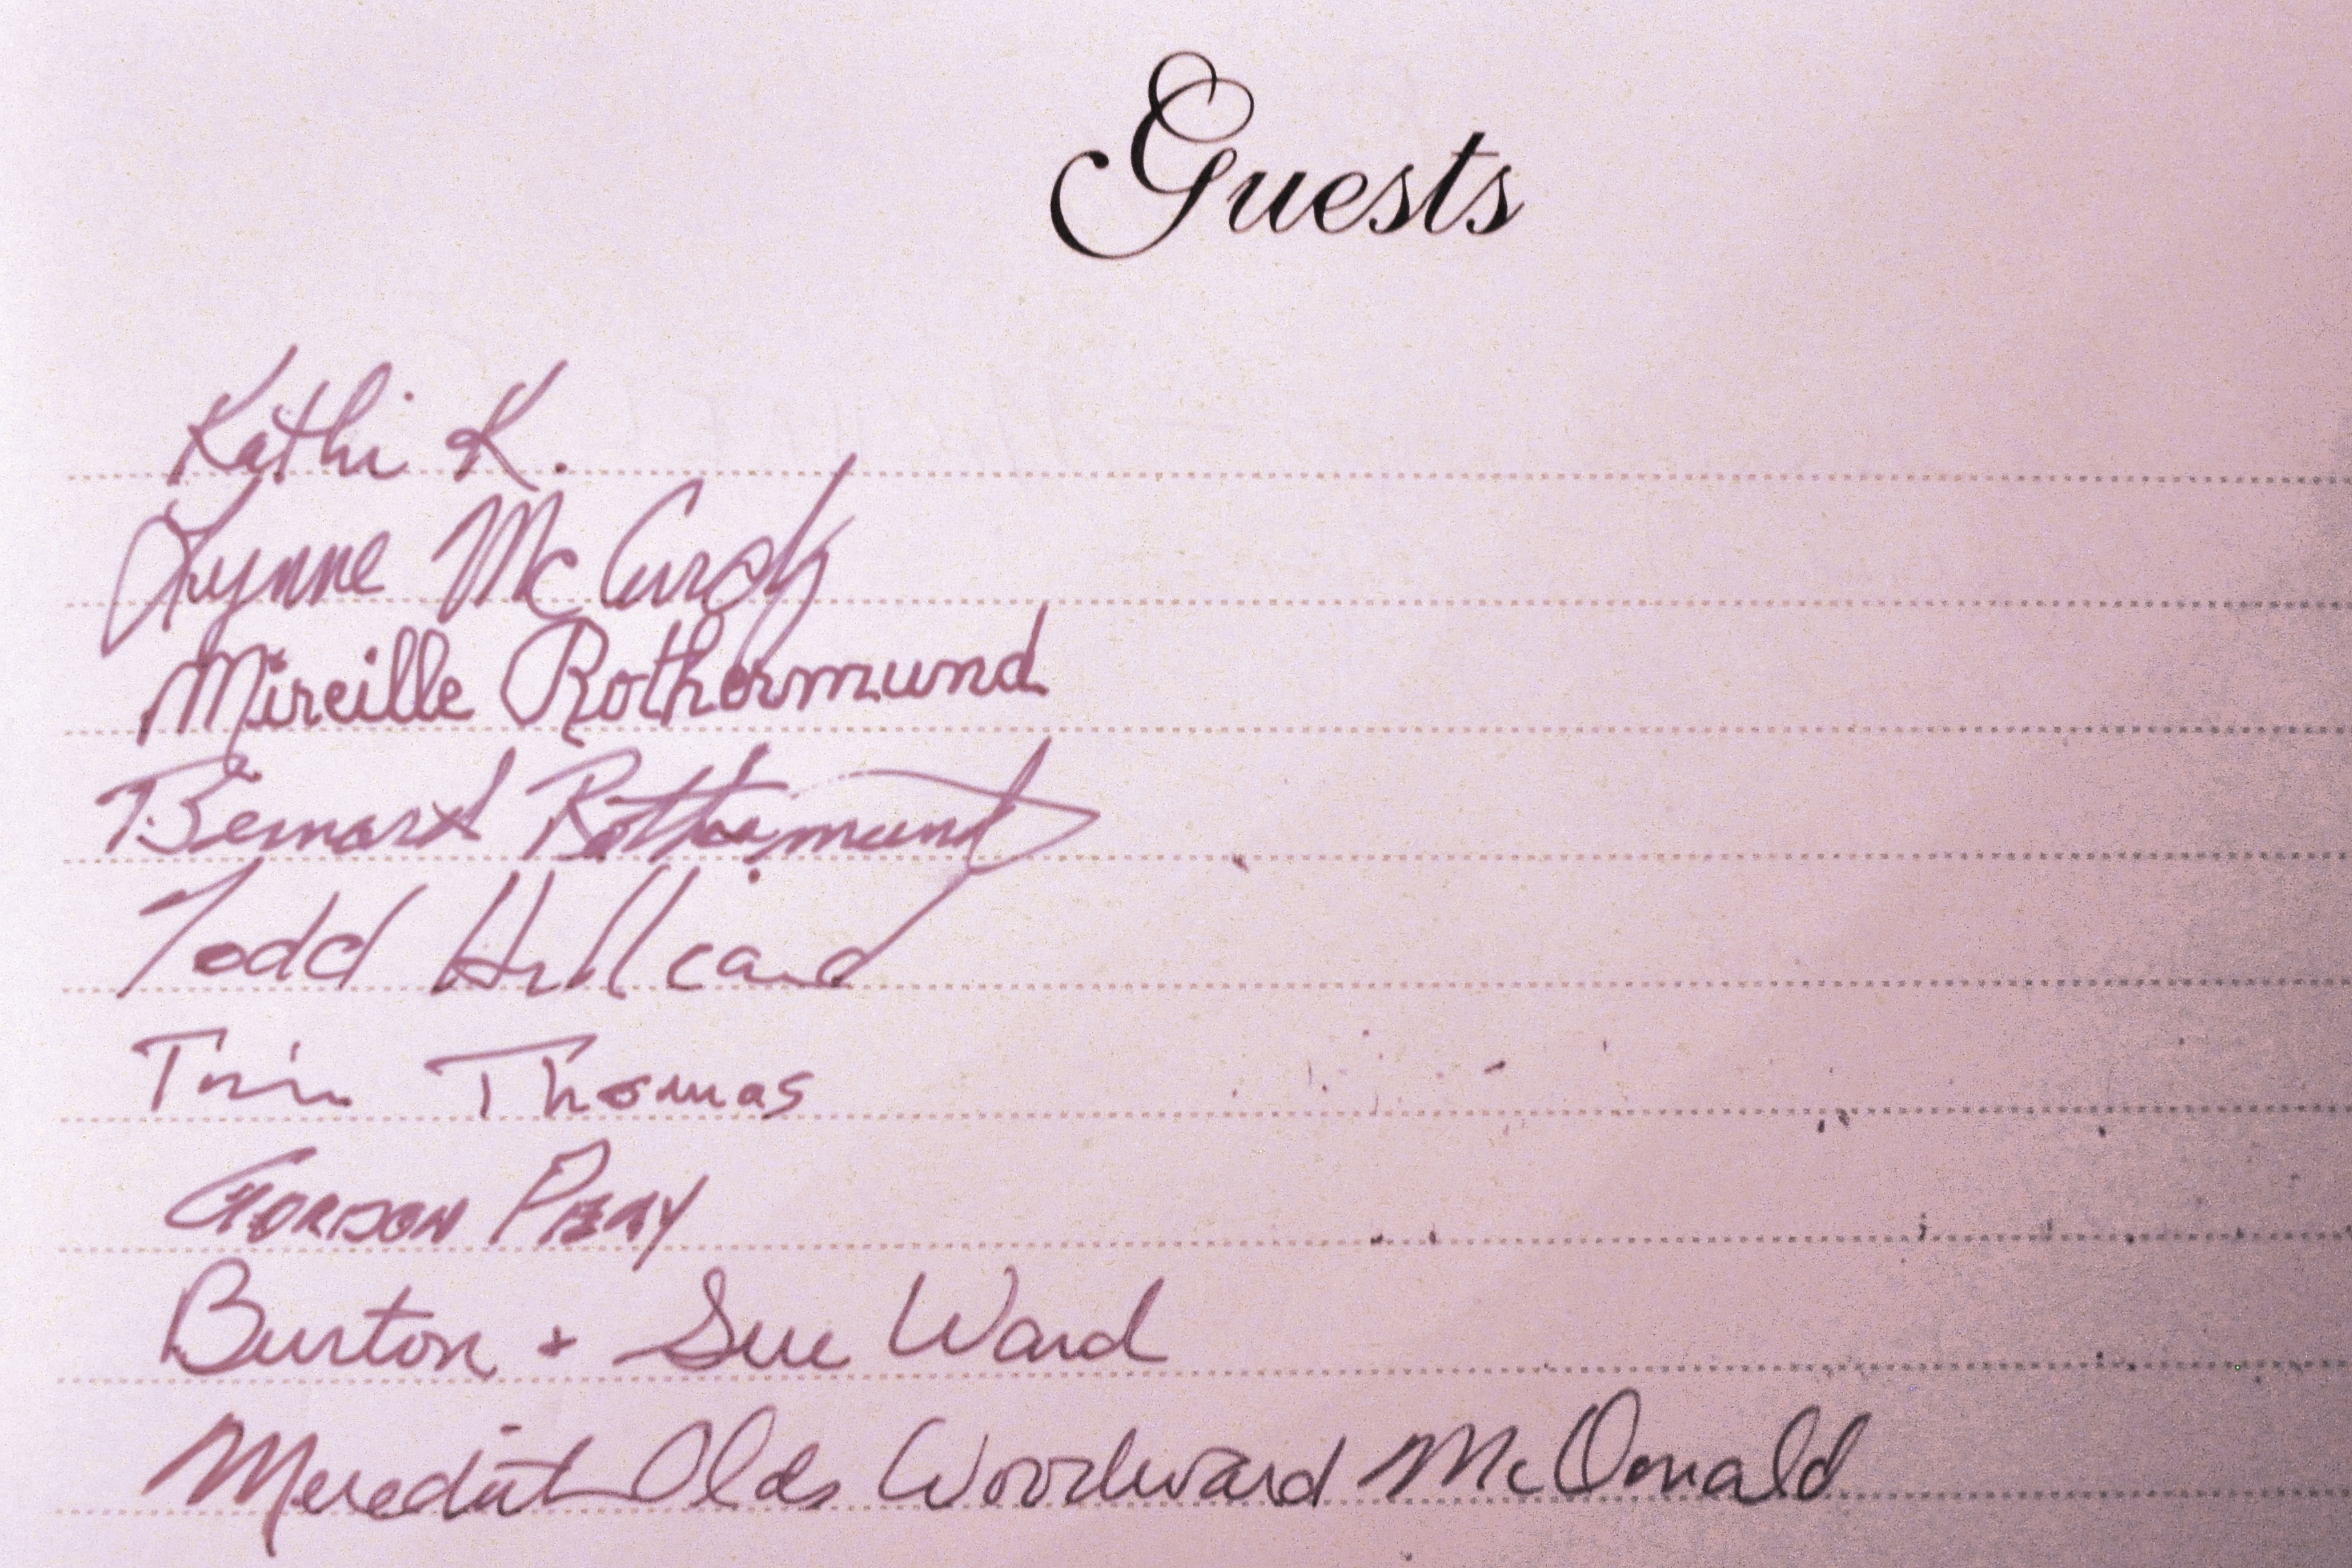 Guests
Kathi K.
Lynne McCurdy
Mireille Rothermund
Bernard Rothermund
Todd Hillcard
Thomas
Gordon
Burton + Sue Ward
Meredith Olds Woodward McDonald